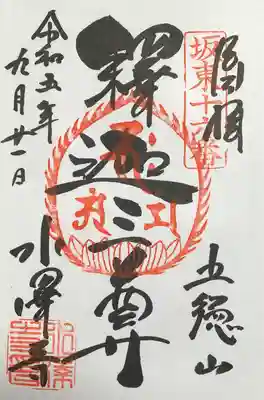 坂東十六番
釋迦三尊
五德山
水澤寺
令和五年
九月廿一日